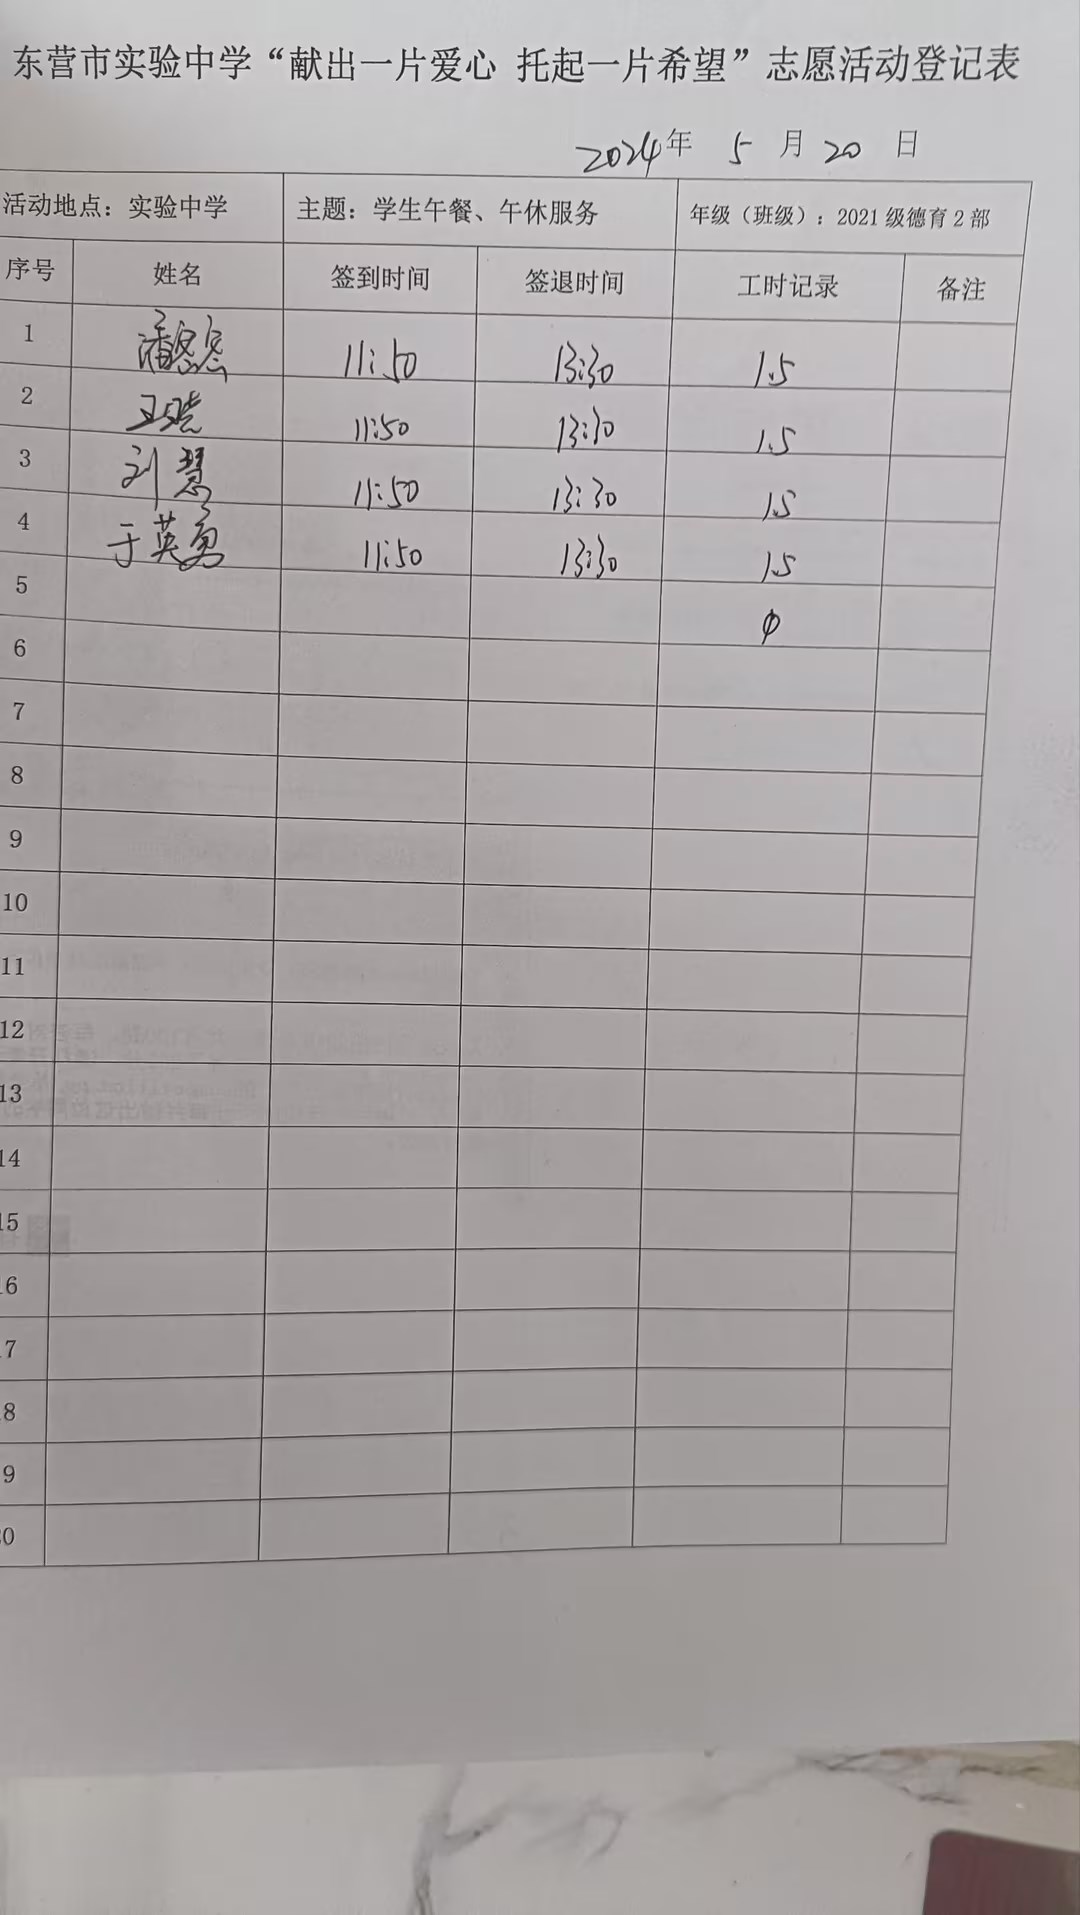 东营市实验中学“献出一片爱心 托起一片希望”志愿活动登记表
2024年 5 月 20 日
活动地点：实验中学 主题：学生午餐、午休服务 年级（班级）：2021级德育2部
序号 姓名 签到时间 签退时间 工时记录 备注
1 潘 11:50 13:30 1.5
2 王晓 11:50 13:30 1.5
3 刘慧 11:50 13:30 1.5
4 于英勇 11:50 13:30 1.5
5 φ
6
7
8
9
10
11
12
13
14
15
6
7
8
9
0